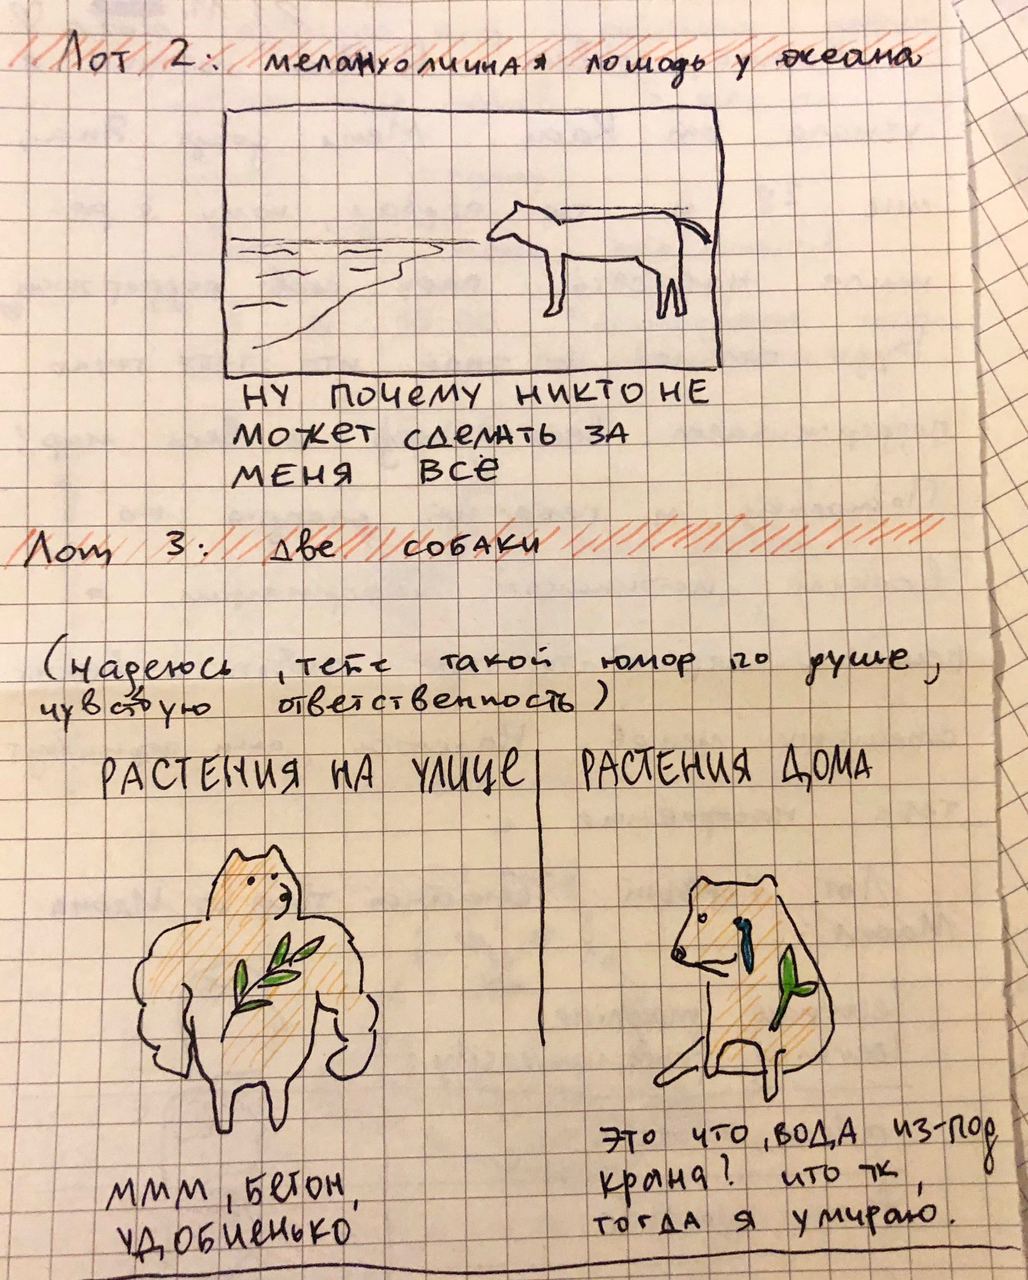 Лот 2: меланхоличная лошадь у океана
НУ ПОЧЕМУ НИКТО НЕ
МОЖЕТ СДЕЛАТЬ ЗА
МЕНЯ ВСЁ
Лот 3: две собаки
(надеюсь, тебе такой юмор по душе,
чувствую ответственность)
РАСТЕНИЯ НА УЛИЦЕ
РАСТЕНИЯ ДОМА
МММ, БЕТОН,
УДОБНЕНЬКО
ЭТО ЧТО, ВОДА ИЗ-ПОД
КРАНА?
ТОГДА Я УМИРАЮ.